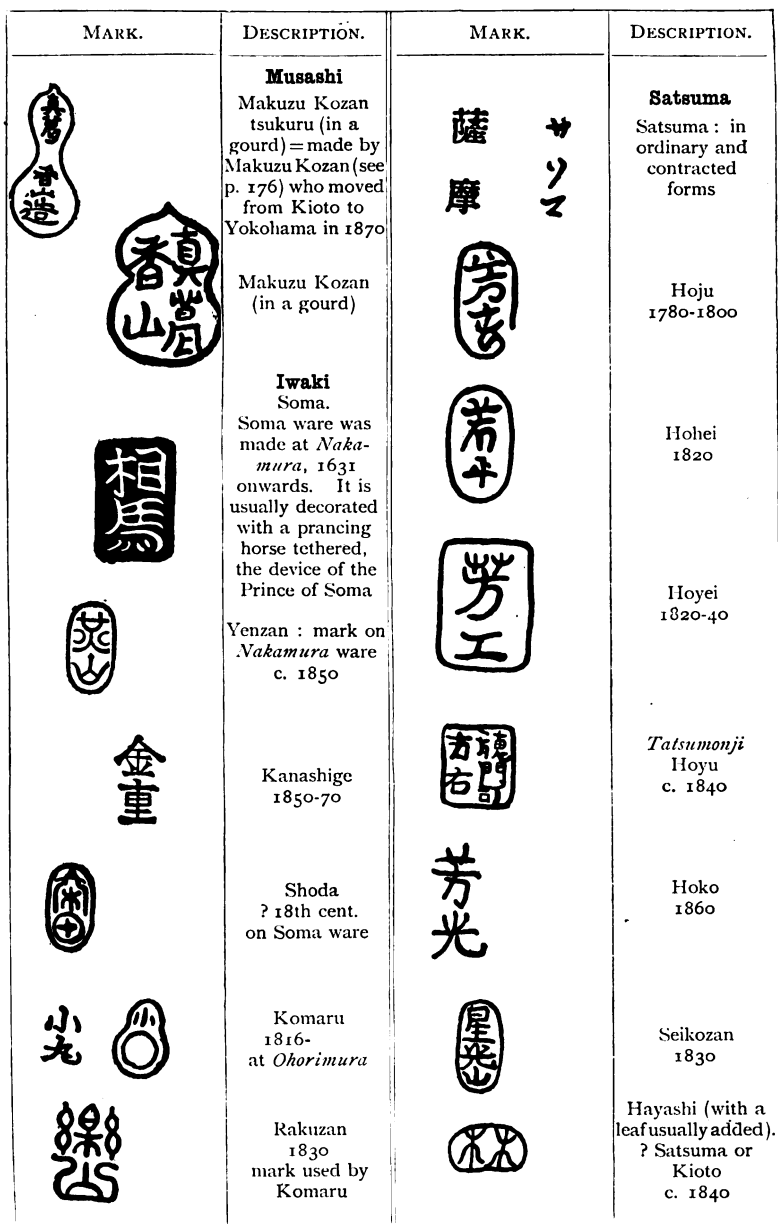 MARK.
DESCRIPTION.
真葛
香山造
Musashi
Makuzu Kozan
tsukuru (in a
gourd) = made by
Makuzu Kozan (see
p. 176) who moved
from Kioto to
Yokohama in 1870
真葛
香山
Makuzu Kozan
(in a gourd)
Iwaki
Soma.
相馬
Soma ware was
made at Naka-
mura, 1631
onwards. It is
usually decorated
with a prancing
horse tethered,
the device of the
Prince of Soma
Yenzan : mark on
Nakamura ware
c. 1850
金重
Kanashige
1850-70
Shoda
? 18th cent.
on Soma ware
小丸
小
Komaru
1816-
at Ohorimura
樂山
Rakuzan
1830
mark used by
Komaru
MARK.
DESCRIPTION.
薩摩
サツマ
Satsuma
Satsuma : in
ordinary and
contracted
forms
Hoju
1780-1800
芳平
Hohei
1820
芳工
Hoyei
1820-40
門司
方右
Tatsumonji
Hoyu
c. 1840
芳光
Hoko
1860
星光山
Seikozan
1830
林
Hayashi (with a
leaf usually added).
? Satsuma or
Kioto
c. 1840